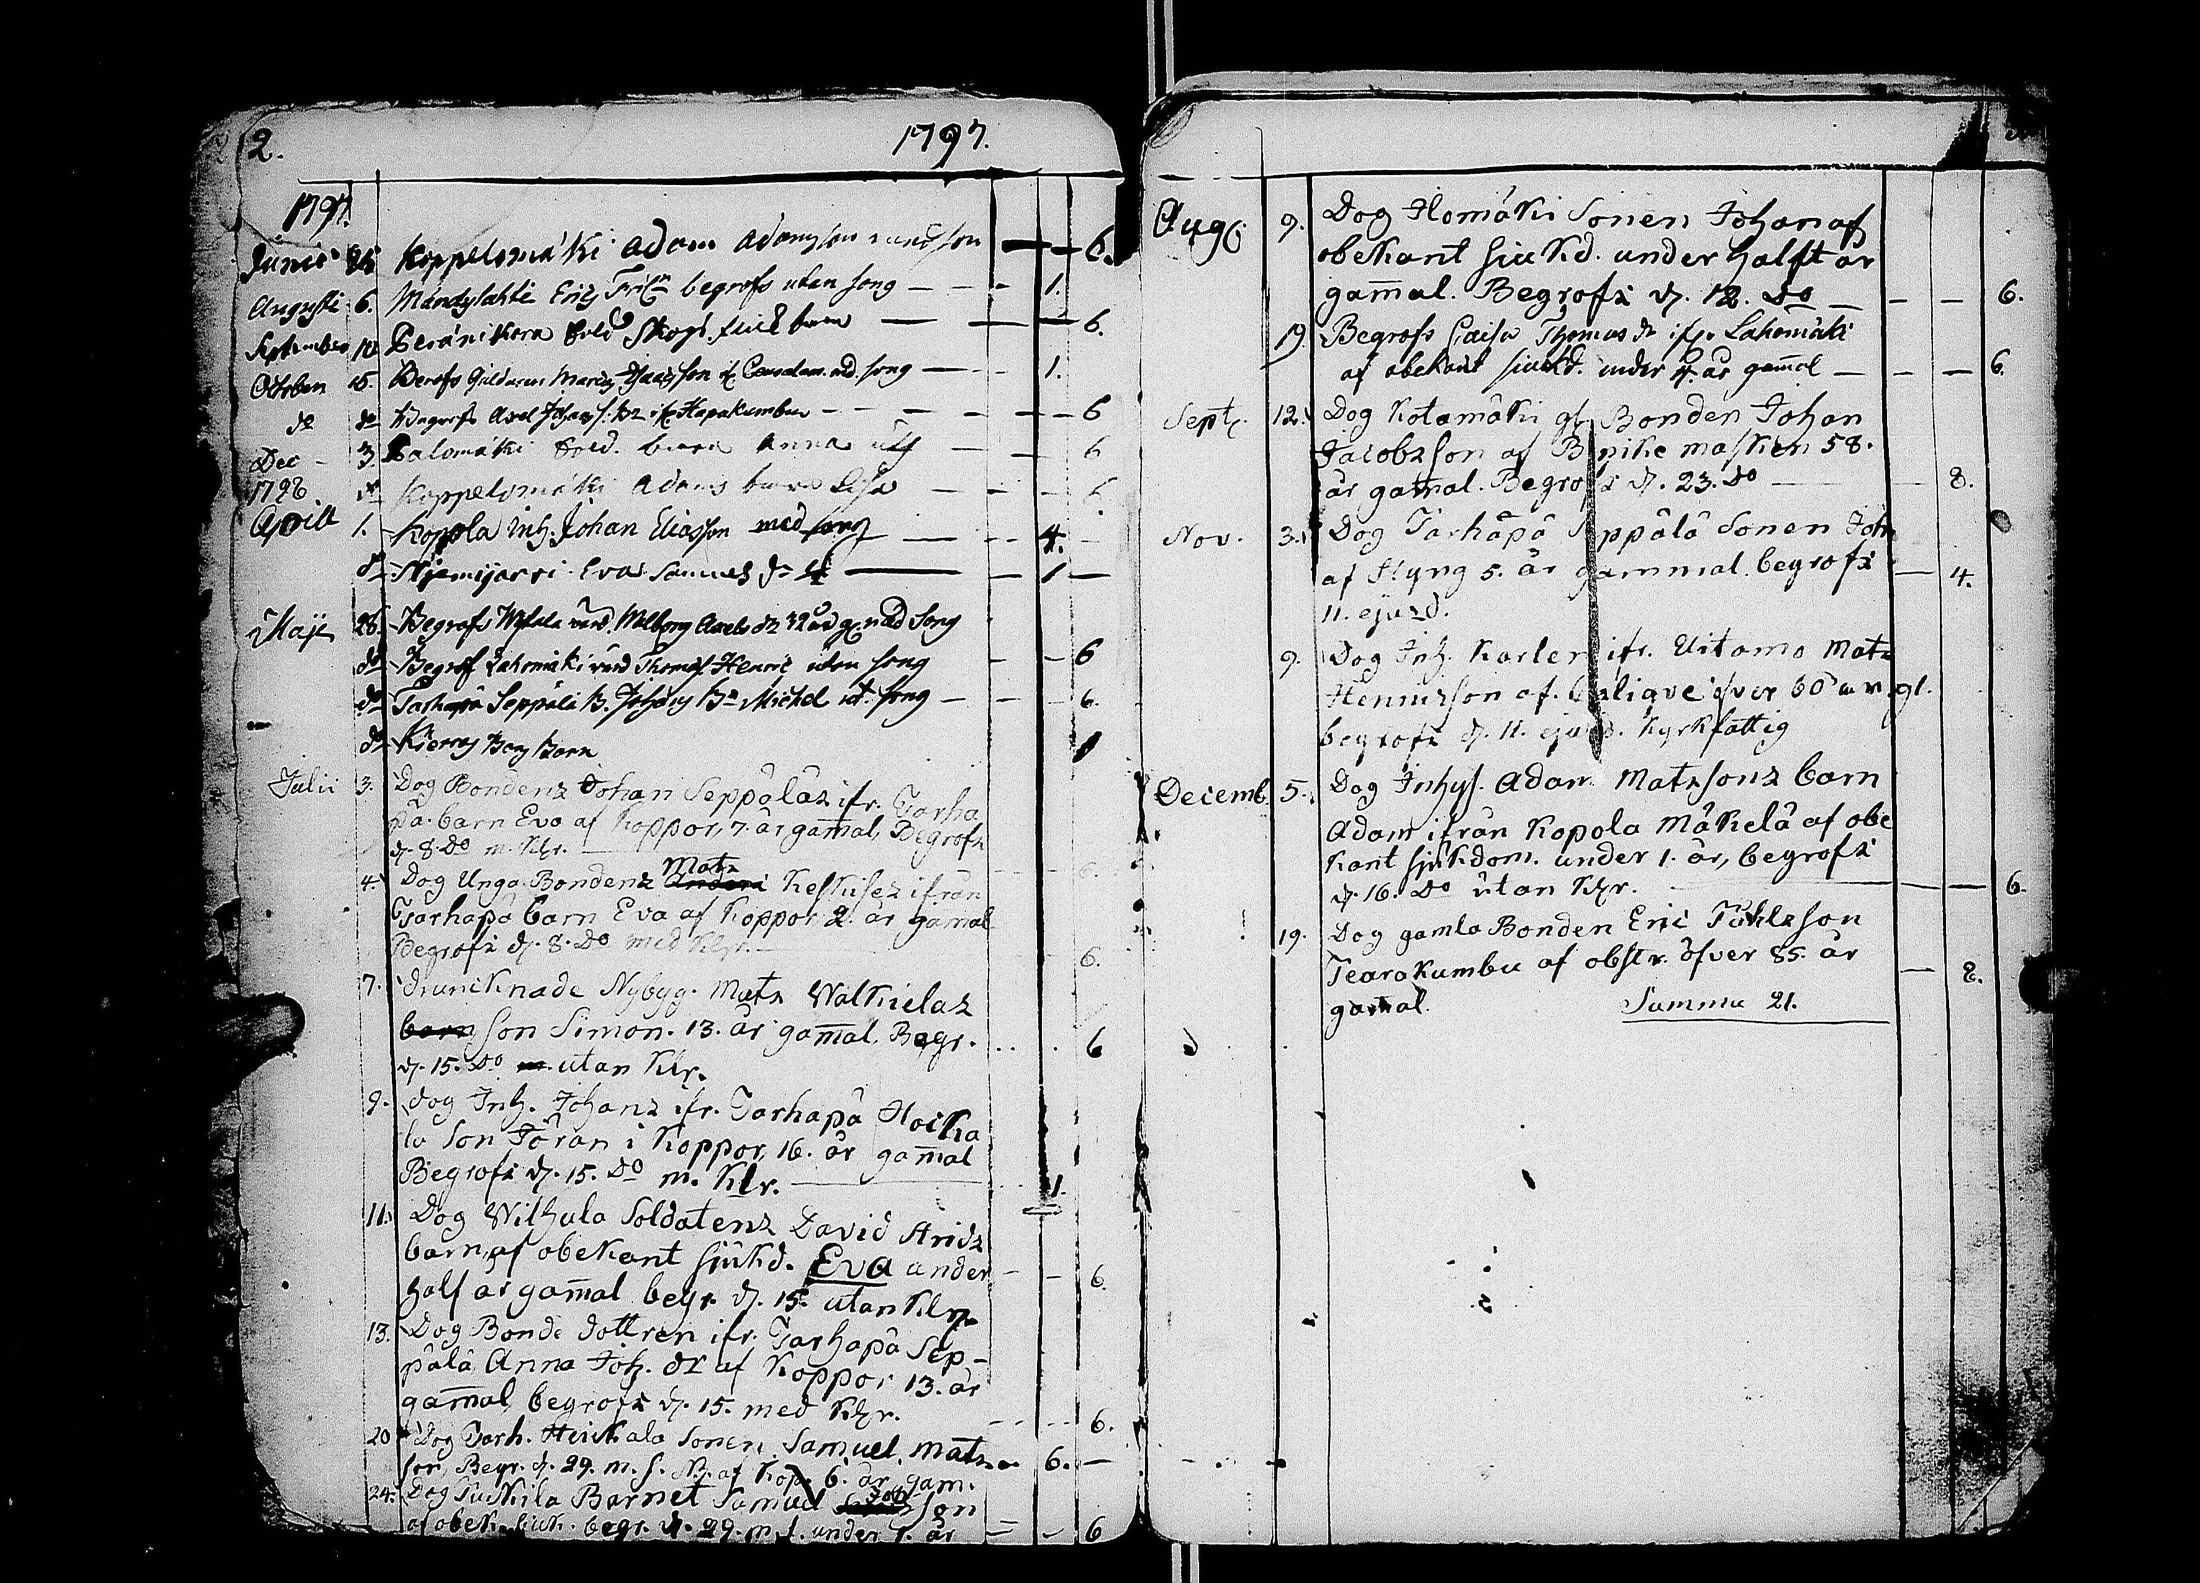 2. 1797.
1797.
Junii 25 Koppelomäki Adam Adamsson 6.
Augusti 6. Mändylahti Eric begrofs utan song — 1.
September 10 Peränikara Sold Skogs barn — 6.
October 15. song — 1.
do do Begrofs Axel ifr Hapakumbu — 6
Dec 3. Palomäki Sold. barn Anna — 6
1798. do Koppelomäki Adams barn Lisa — 6.
Aprill 1. Koppla Inh. Johan Eliasson med song — 4.
do Njemijarvi Eva Samuels dr — 1 —
Maji 28. Begrafs Walborg Axels dr 32 år g. med song
do Begrof Lahomäki Thomas Henric utan song — 6
do Tarhapä Seppälä B. Johans Bn Michel ut. song — 6.
do Barn 1
Julii 3. Dog Bondens Johan Seppäläs ifr. Tarha
pä barn Eva af Koppor, 7. år gam̄al, Begrofs
d. 8. Do m. Klr.
4. Dog Unga Bondens Mats Keskises ifrån
Tarhapä barn Eva af Koppor 2. år gamal
Begrofs d. 8. Do med Klr. 6.
7. drunknade Nybyg. Mats Walkielas
barn son Simon. 13. år gam̄al. Begr.
d. 15. Do m. utan Klr. 6
9. Dog Inh. Johans ifr. Tarhapä Hoika
la Son Jöran i Koppor, 16. år gam̄al
Begrofs d. 15. Do m. Klr. 1.
11. Dog Wilhula Soldatens David Strids
barn, af obekant sjukd. Eva under
half år gam̄al begr. d. 15. utan Klr. 6.
13. Dog Bonde dottren ifr. Tarhapä Sep-
pälä Anna Joh. dr af Koppor 13. år
gam̄al, begrofs d. 15. med Klr. 6.
20 Dog Tarh. Heickala Sonen Samuel Mats
son, Begr. d. 29. m. s. af Kop. 6. år gam. 6. —
24. Dog Barnet Samuel Joh son
af obek. siuk. begr. d. 29. m. s. under 1. år 6
Aug. 9. Dog Ilomäki Sonen Johan af
obekant siukd. under halft år
gam̄al. Begrofs d. 12. Do — 6.
19. Begrofs Caisa Thomas dr ifr. Lahomäki
af obekant siukd. under år gam̄al — 6.
Sept. 12. Dog Kotamäki gl. Bonden Johan
Jacobsson af 58.
år gamal. Begrofs d. 23. Do — 8.
Nov. 3. Dog Tarhapä Seppälä Sonen Joh
af Hyng 5. år gammal. begrofs — 4.
11. ejusd.
9. Dog Inh. Karlen ifr. Uitamo Mats
Henricsson af. öfver 60 gl.
begrofs d. 11. ejusd. Kyrkfattig
Decemb. 5. Dog Inhys. Adam Matssons barn
Adam ifrån Kopola Mäkelä af obe
kant sjukdom. under 1. år, begrofs
d. 16. Do utan Klr. — 6.
19. Dog gamla Bonden Eric Påhlsson
Tearakumbu af obstr. öfver 85. år — 8.
gamal. Summa 21.